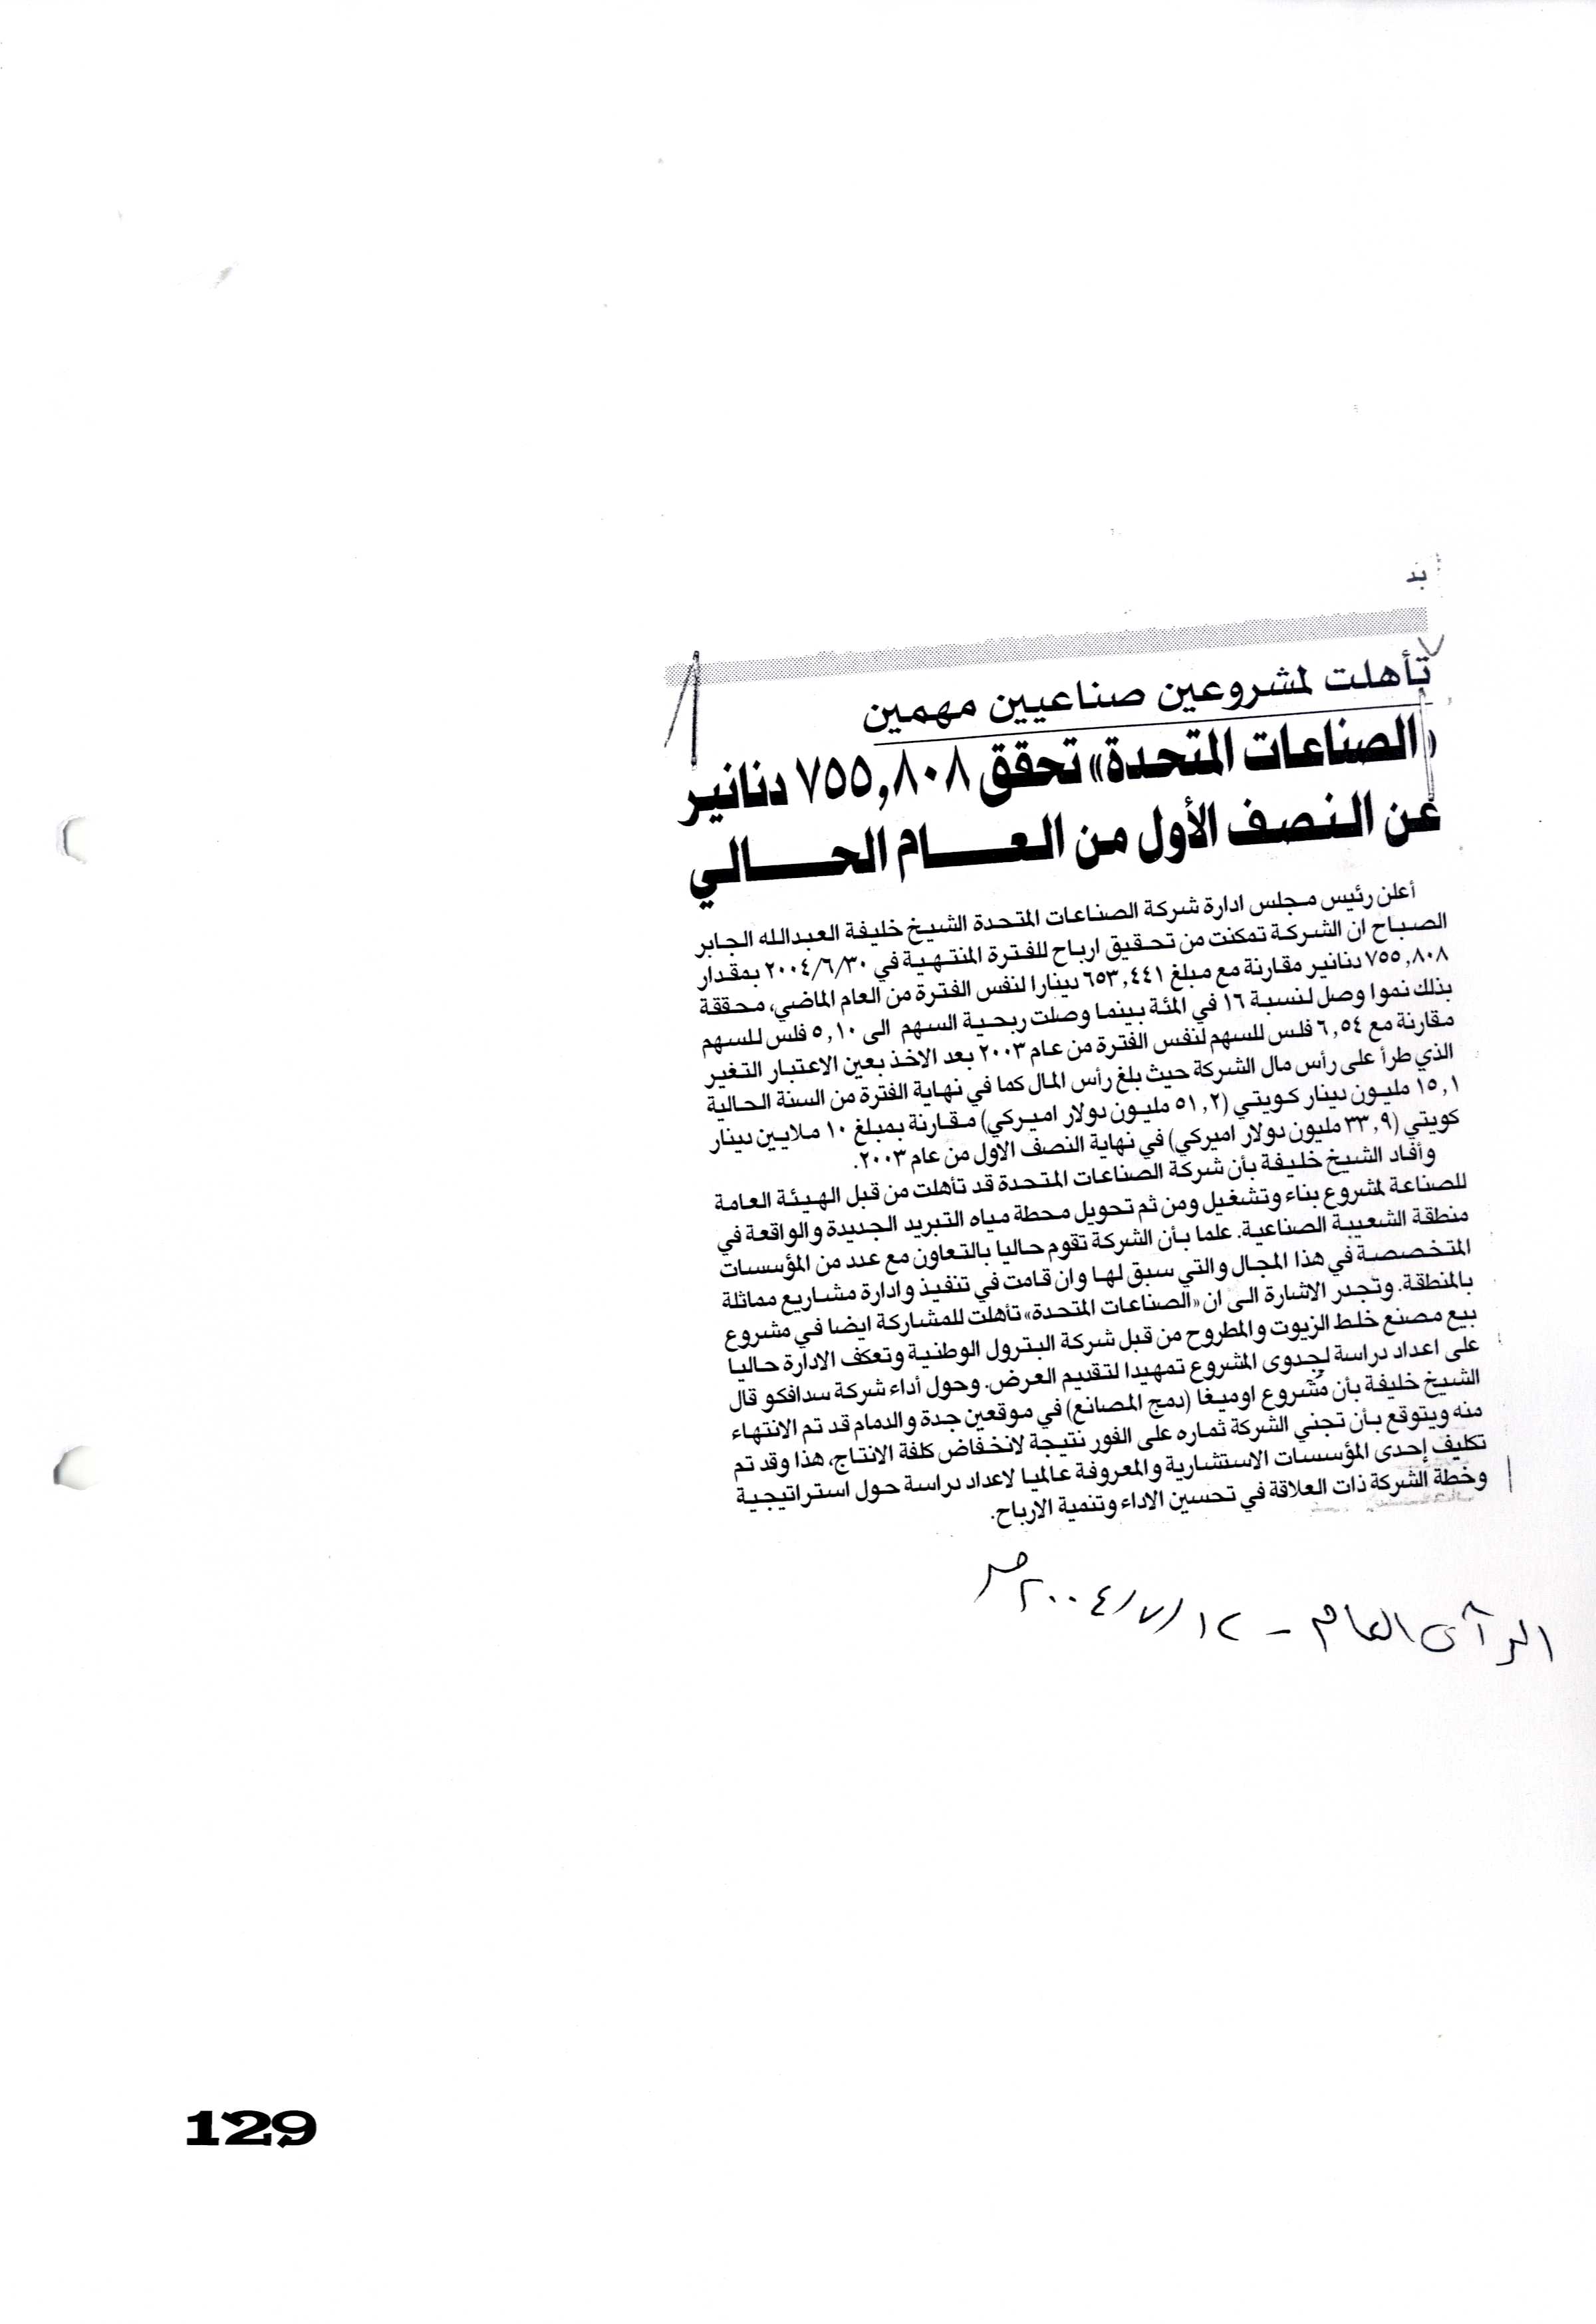 بد
تأهلت لمشروعين صناعيين مهمين
«الصناعات المتحدة» تحقق ٧٥٥,٨٠٨ دنانير
عن النصف الأول من العام الحالي
أعلن رئيس مجلس ادارة شركة الصناعات المتحدة الشيخ خليفة العبدالله الجابر
الصباح ان الشركة تمكنت من تحقيق ارباح للفترة المنتهية في ٢٠٠٤/٦/٣٠ بمقدار
٧٥٥,٨٠٨ دنانير مقارنة مع مبلغ ٦٥٣,٤٤١ دينارا لنفس الفترة من العام الماضي، محققة
بذلك نموا وصل لنسبة ١٦ في المئة بينما وصلت ربحية السهم الى ٥,١٠ فلس للسهم
مقارنة مع ٦,٥٤ فلس للسهم لنفس الفترة من عام ٢٠٠٣ بعد الاخذ بعين الاعتبار التغير
الذي طرأ على رأس مال الشركة حيث بلغ رأس المال كما في نهاية الفترة من السنة الحالية
١٥,١ مليون دينار كويتي (٥١,٢ مليون دولار اميركي) مقارنة بمبلغ ١٠ ملايين دينار
كويتي (٣٣,٩ مليون دولار اميركي) في نهاية النصف الاول من عام ٢٠٠٣.
وأفاد الشيخ خليفة بأن شركة الصناعات المتحدة قد تأهلت من قبل الهيئة العامة
للصناعة لمشروع بناء وتشغيل ومن ثم تحويل محطة مياه التبريد الجديدة والواقعة في
منطقة الشعيبة الصناعية. علما بأن الشركة تقوم حاليا بالتعاون مع عدد من المؤسسات
المتخصصة في هذا المجال والتي سبق لها وان قامت في تنفيذ وادارة مشاريع مماثلة
بالمنطقة. وتجدر الاشارة الى ان «الصناعات المتحدة» تأهلت للمشاركة ايضا في مشروع
بيع مصنع خلط الزيوت والمطروح من قبل شركة البترول الوطنية وتعكف الادارة حاليا
على اعداد دراسة لجدوى المشروع تمهيدا لتقديم العرض. وحول أداء شركة سدافكو قال
الشيخ خليفة بأن مشروع اوميغا (دمج المصانع) في موقعين جدة والدمام قد تم الانتهاء
منه ويتوقع بأن تجني الشركة ثماره على الفور نتيجة لانخفاض كلفة الانتاج، هذا وقد تم
تكليف إحدى المؤسسات الاستشارية والمعروفة عالميا لاعداد دراسة حول استراتيجية
وخطة الشركة ذات العلاقة في تحسين الاداء وتنمية الارباح.
الرأى العام - ٢٠٠٤/٧/١٢ م
129